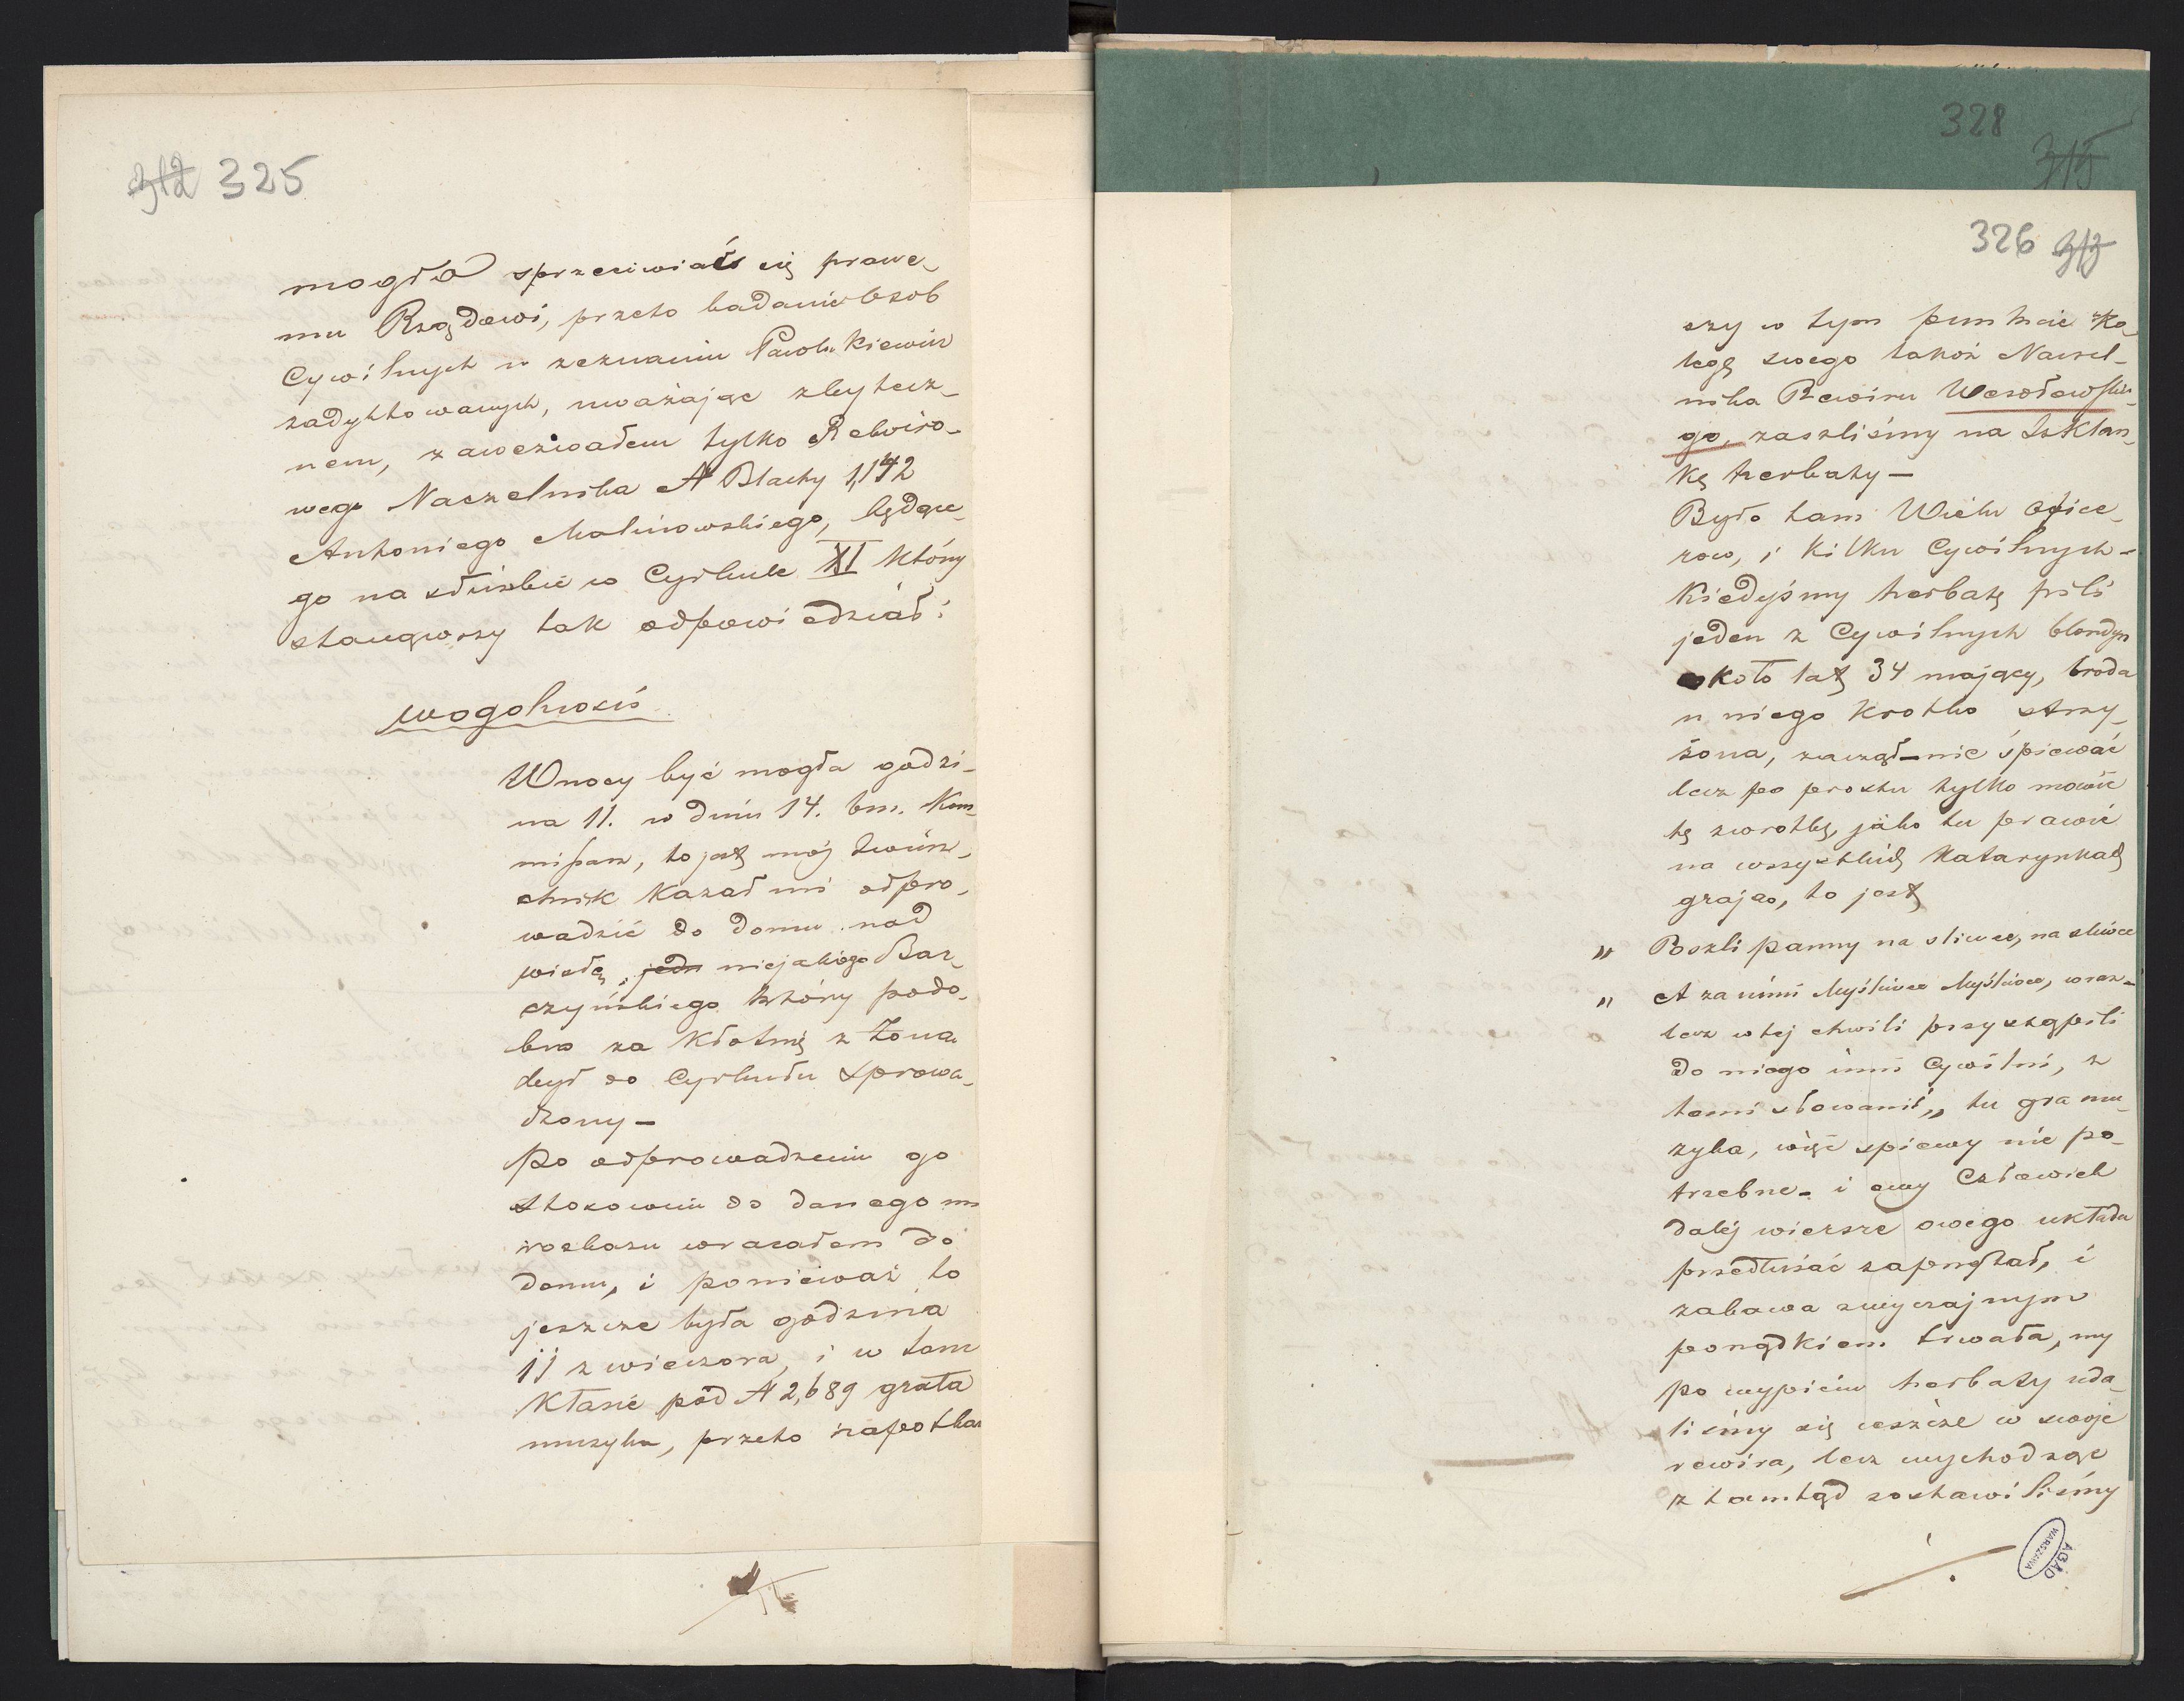 312 325
mogła sprzeciwiać się prawe_
mu Rządowi, przeto badanie Osob
Cywilnych w zeznaniu Pawlukiewicz
zadyktowanych, uważając zbytecz_
nem, zawezwałem tylko Rewiro_
wego Naczelnika A Blachy 1,142
Antoniego Malinowskiego, będące_
go na służbie w Cyrkule XI który
stanąwszy tak odpowiedział:
wogolności
W nocy być mogła godzi_
na 11. w dniu 14. bm. Kom_
missarz, to jest moj zwierz_
chnik kazał mi odpro_
wadzić do domu nad
wisłą, niejakiego Bar_
czyńskiego który podo_
bno za kłotnię z żoną
był do Cyrkułu sprowa_
dzony –
Po odprowadzeniu go
stosownie do danego mi
rozkazu wracałem do
domu, i ponieważ to
jeszcze była godzina
11 z wieczora, i w tam
pod A 2,689 grała
muzyka, przeto napotka
328
315
326 313
czy w tym punkcie Ko_
legę swego także Naczel_
nika Rewiru Wesołowskie_
go, zaszliśmy na szklan_
kę herbaty –
Było tam Wielu ofice_
row, i kilku Cywilnych –
Kiedyśmy herbatę pili
jeden z Cywilnych blondyn
około lat 34 mający, broda
u niego krotko strzy_
żona, zaczął – nie śpiewać
lecz po prostu tylko mowić
tę zwrotkę, jako tu prawie
na wszystkich Katarynkach
grają, to jest
„ Poszli panny na śliwce, na śliwce
„ A za nimi Myśliwce Myśliwce, wraz –
lecz w tej chwili przystąpili
do niego inni Cywilni, z
temi słowami „ tu gra mu_
zyka, więc śpiewy nie po_
trzebne – i owy Człowiek
dalej wiersze owego układu
przedłużać zaprzestał, i
zabawa zwyczajnym
porządkiem trwała, my
po wypiciu herbaty uda_
liśmy się jeszcze w swoje
rewira, lecz wychodząc
z tamtąd zostawiliśmy
AGAD
WARSZAWA